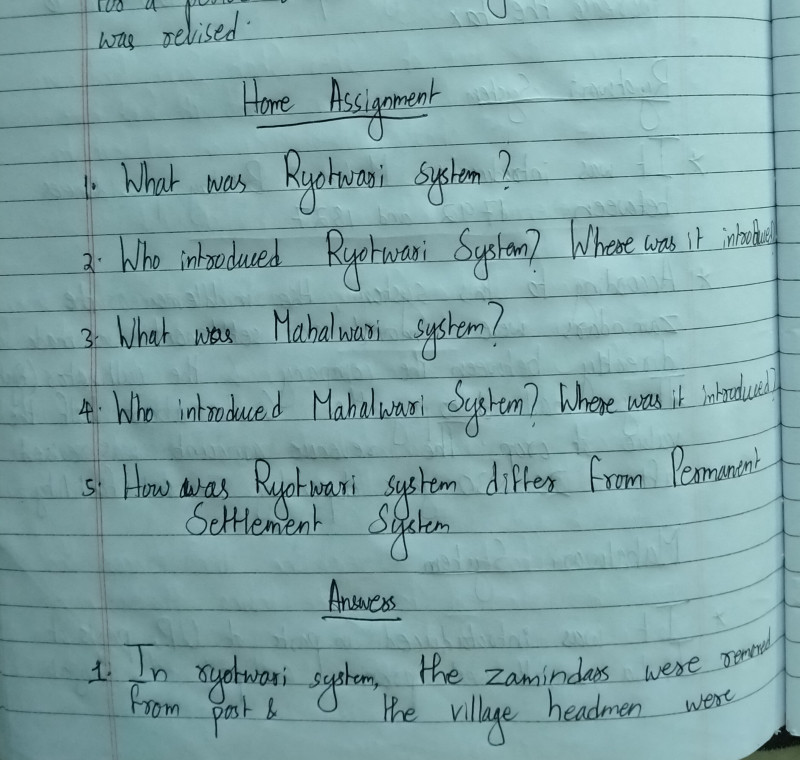 for a
was revised.
Home Assignment
1. What was Ryotwari system?
2. Who introduced Ryotwari System? Where was it introduced
3. What was Mahalwari system?
4. Who introduced Mahalwari System? Where was it introduced?
5. How was Ryotwari system differ from Permanent
Settlement System
Answers
1. In ryotwari system, the zamindars were removed
from post & the village headmen were